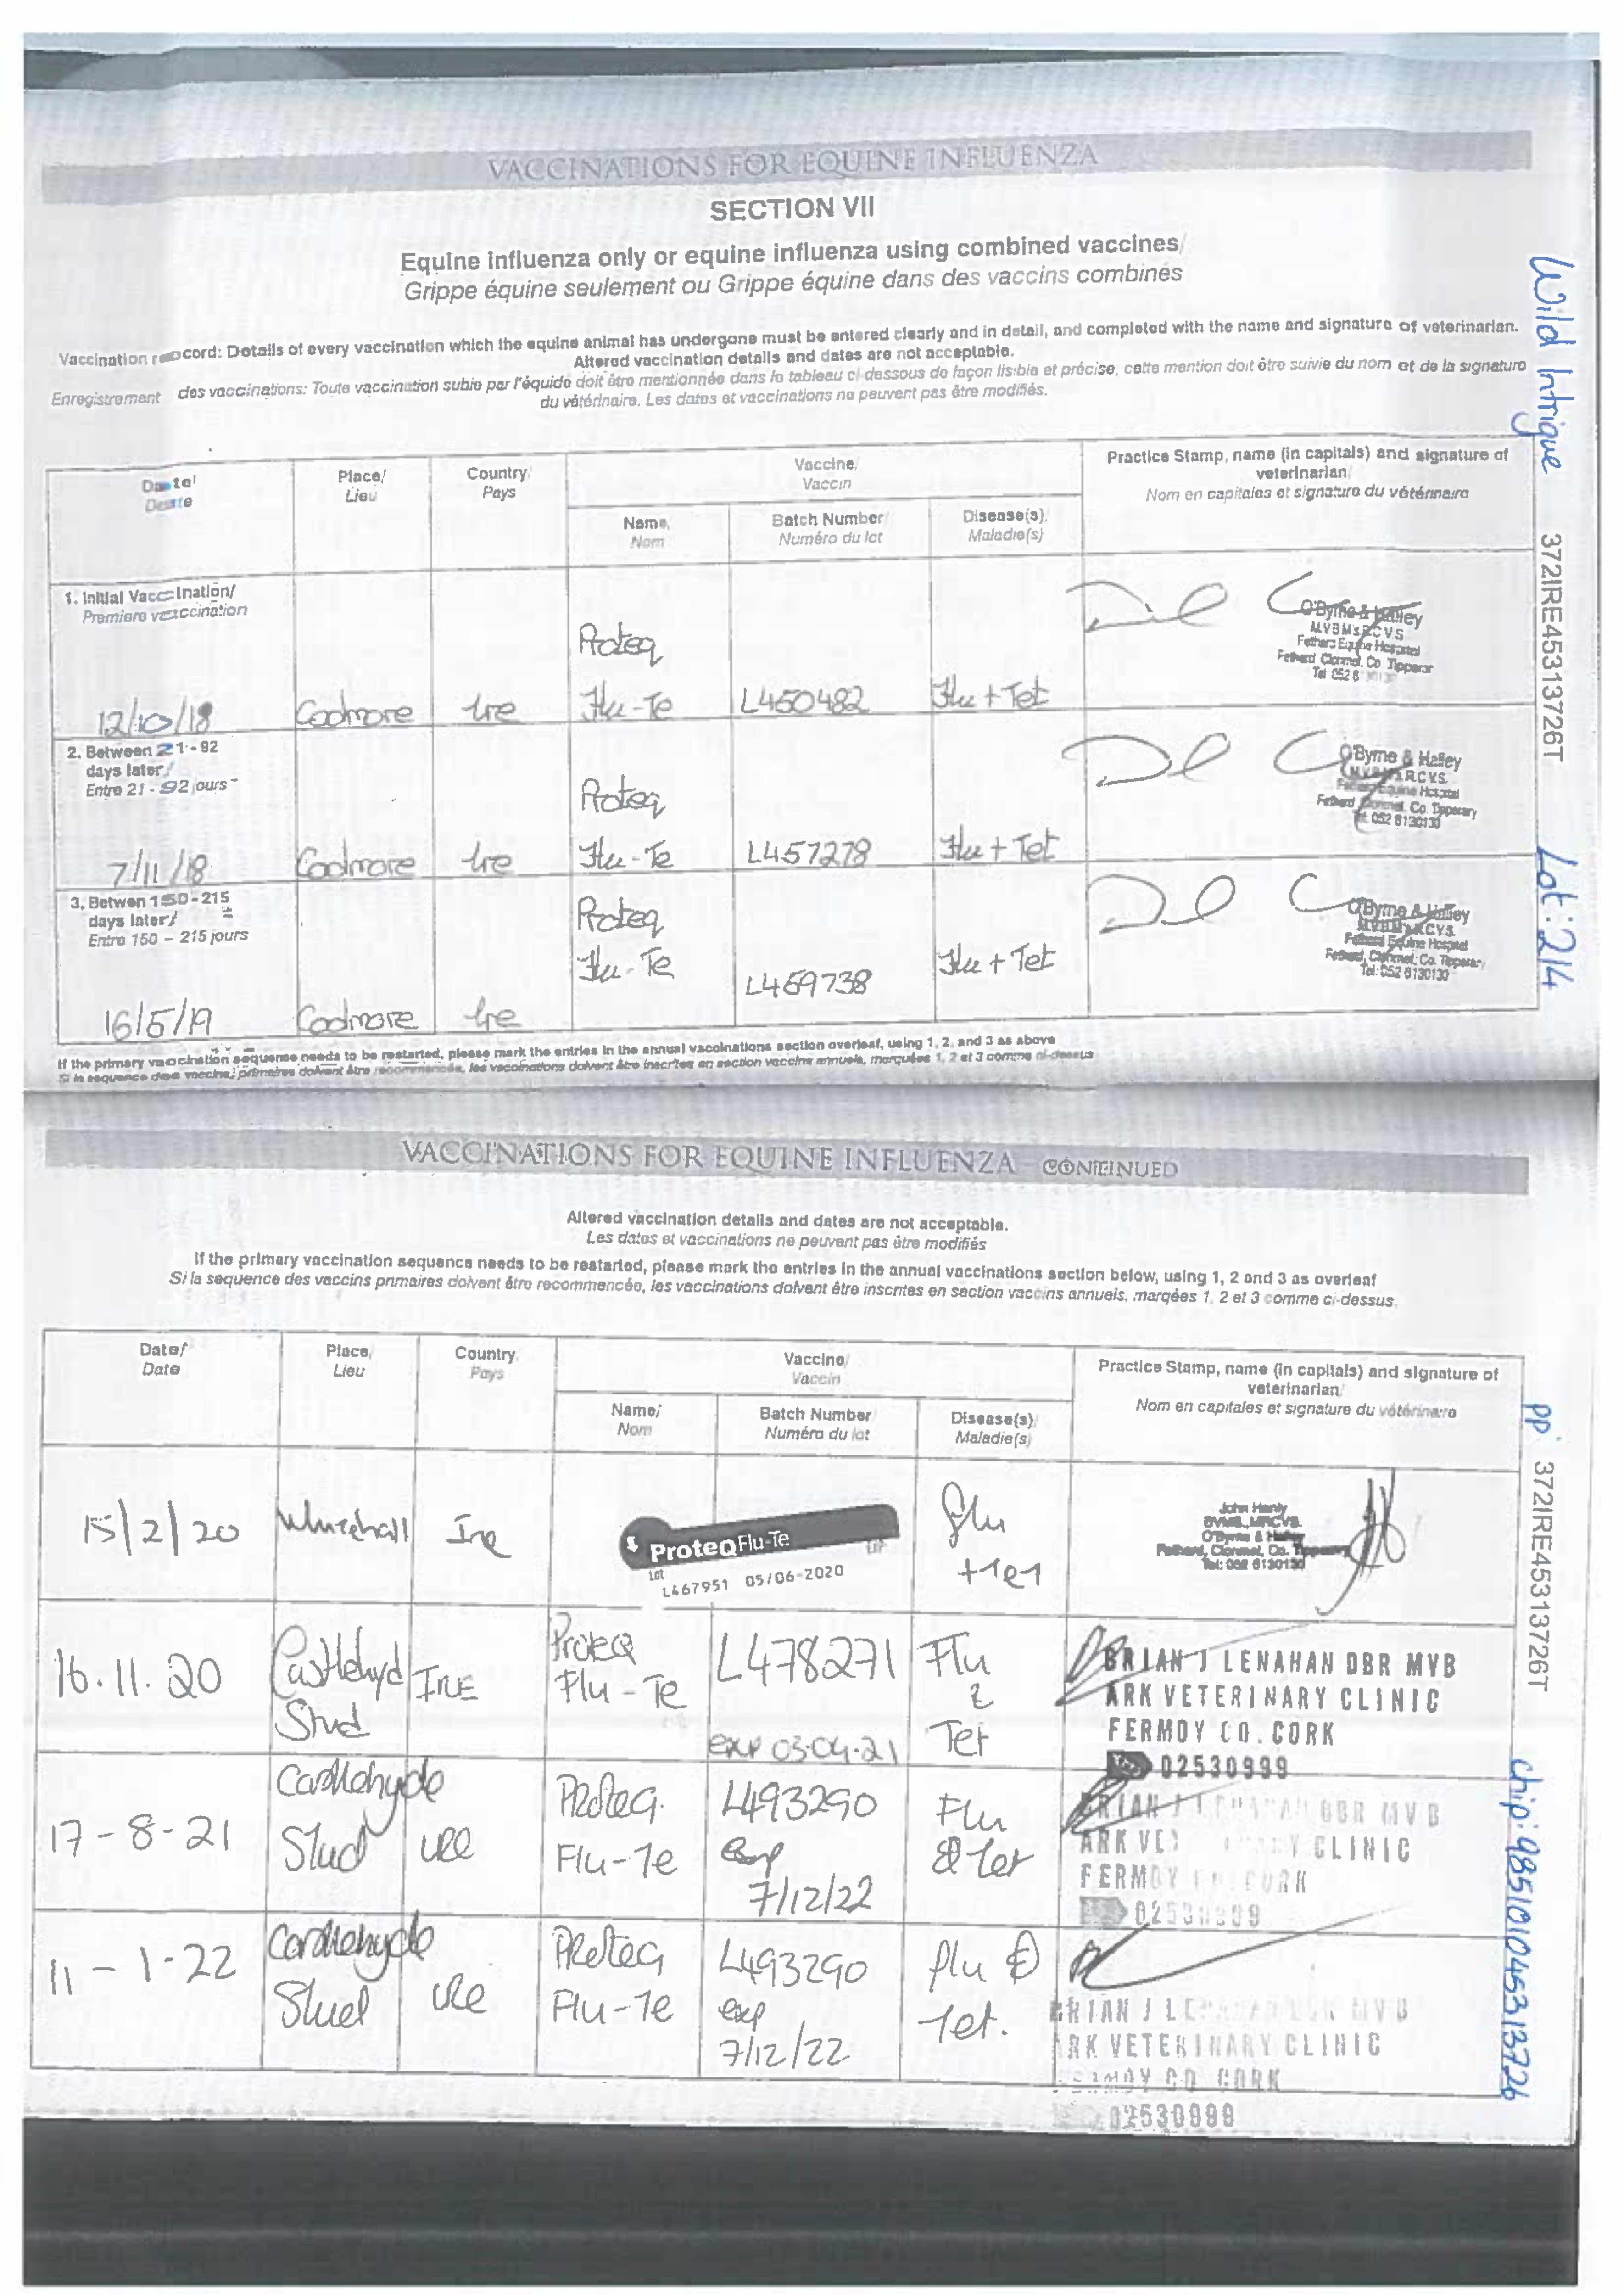 VACCINATIONS FOR EQUINE INFLUENZA
SECTION VII
Equine influenza only or equine influenza using combined vaccines/
Grippe équine seulement ou Grippe équine dans des vaccins combinés
Vaccination record: Details of every vaccination which the equine animal has undergone must be entered clearly and in detail, and completed with the name and signature of veterinarian.
Altered vaccination details and dates are not acceptable.
Enregistrement des vaccinations: Toute vaccination subie par l'équidé doit être mentionnée dans le tableau ci-dessous de façon lisible et précise, cette mention doit être suivie du nom et de la signature
du vétérinaire. Les dates et vaccinations ne peuvent pas être modifiés.
Wild Intrigue 372IRE45313726T Lot: 214
Date/
Date
Place/
Lieu
Country/
Pays
Vaccine/
Vaccin
Practice Stamp, name (in capitals) and signature of
veterinarian/
Nom en capitales et signature du vétérinaire
Name/
Nom
Batch Number/
Numéro du lot
Disease(s)/
Maladie(s)
1. Initial Vaccination/
Premiere vaccination
12/10/18 Coolmore Ire Proteq
Flu-Te L450482 Flu + Tet
O'Byrne & Halley
MVBMsRCVS
Fethard Equine Hospital
Fethard Clonmel, Co Tipperar
Tel 052 6
2. Between 21 - 92
days later/
Entre 21 - 92 jours
7/11/18 Coolmore Ire Proteq
Flu-Te L457278 Flu + Tet
O'Byrne & Halley
MVBMsRCVS
Fethard Equine Hospital
Fethard Clonmel, Co. Tipperary
Tel: 052 6130130
3. Betwen 150 - 215
days later/
Entre 150 – 215 jours
16/5/19 Coolmore Ire Proteq
Flu-Te L469738 Flu + Tet
O'Byrne & Halley
MVBMsRCVS
Fethard Equine Hospital
Fethard, Clonmel, Co. Tipperary
Tel: 052 6130130
If the primary vaccination sequence needs to be restarted, please mark the entries in the annual vaccinations section overleaf, using 1, 2, and 3 as above
Si la sequence des vaccins primaires doivent être recommencée, les vaccinations doivent être inscrites en section vaccine annuels, marquées 1, 2 et 3 comme ci-dessus
VACCINATIONS FOR EQUINE INFLUENZA - CONTINUED
Altered vaccination details and dates are not acceptable.
Les dates et vaccinations ne peuvent pas être modifiés
If the primary vaccination sequence needs to be restarted, please mark the entries in the annual vaccinations section below, using 1, 2 and 3 as overleaf
Si la sequence des vaccins primaires doivent être recommencée, les vaccinations doivent être inscrites en section vaccins annuels, marqées 1, 2 et 3 comme ci-dessus.
pp: 372IRE45313726T chip: 985101045313726
Date/
Date
Place/
Lieu
Country/
Pays
Vaccine/
Vaccin
Practice Stamp, name (in capitals) and signature of
veterinarian/
Nom en capitales et signature du vétérinaire
Name/
Nom
Batch Number/
Numéro du lot
Disease(s)/
Maladie(s)
15/2/20 Whitehall Ire
ProteqFlu-Te
Lot
L467951 05/06-2020
Flu
+Tet
John Hanly
BVMS., MRCVS.
O'Byrne & Halley
Fethard, Clonmel, Co. Tipperary
Tel: 052 6130130
16.11.20 Castlehyd
Stud IRE ProteQ
Flu-Te L478271
exp 03.04.21
Flu
&
Tet
BRIAN J LENAHAN DBR MVB
ARK VETERINARY CLINIC
FERMOY CO. CORK
02530999
17-8-21 Castlehyde
Stud IRE Proteq.
Flu-Te L493290
Exp
7/12/22
Flu
& Tet
BRIAN J LENAHAN DBR MVB
ARK VETERINARY CLINIC
FERMOY CO. CORK
02530999
11-1-22 Castlehyde
Stud IRE Proteq
Flu-Te L493290
exp
7/12/22
flu &
Tet.
BRIAN J LENAHAN DBR MVB
ARK VETERINARY CLINIC
FERMOY CO. CORK
02530999